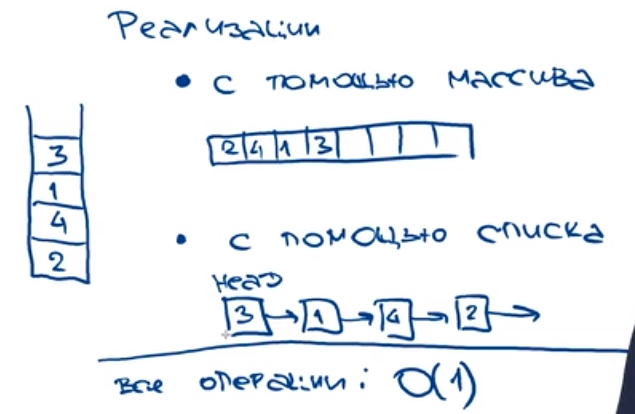 Реализации
• с помощью массива
2 4 1 3
3
1
4
2
• с помощью списка
Head
3 → 1 → 4 → 2 →
все операции: O(1)